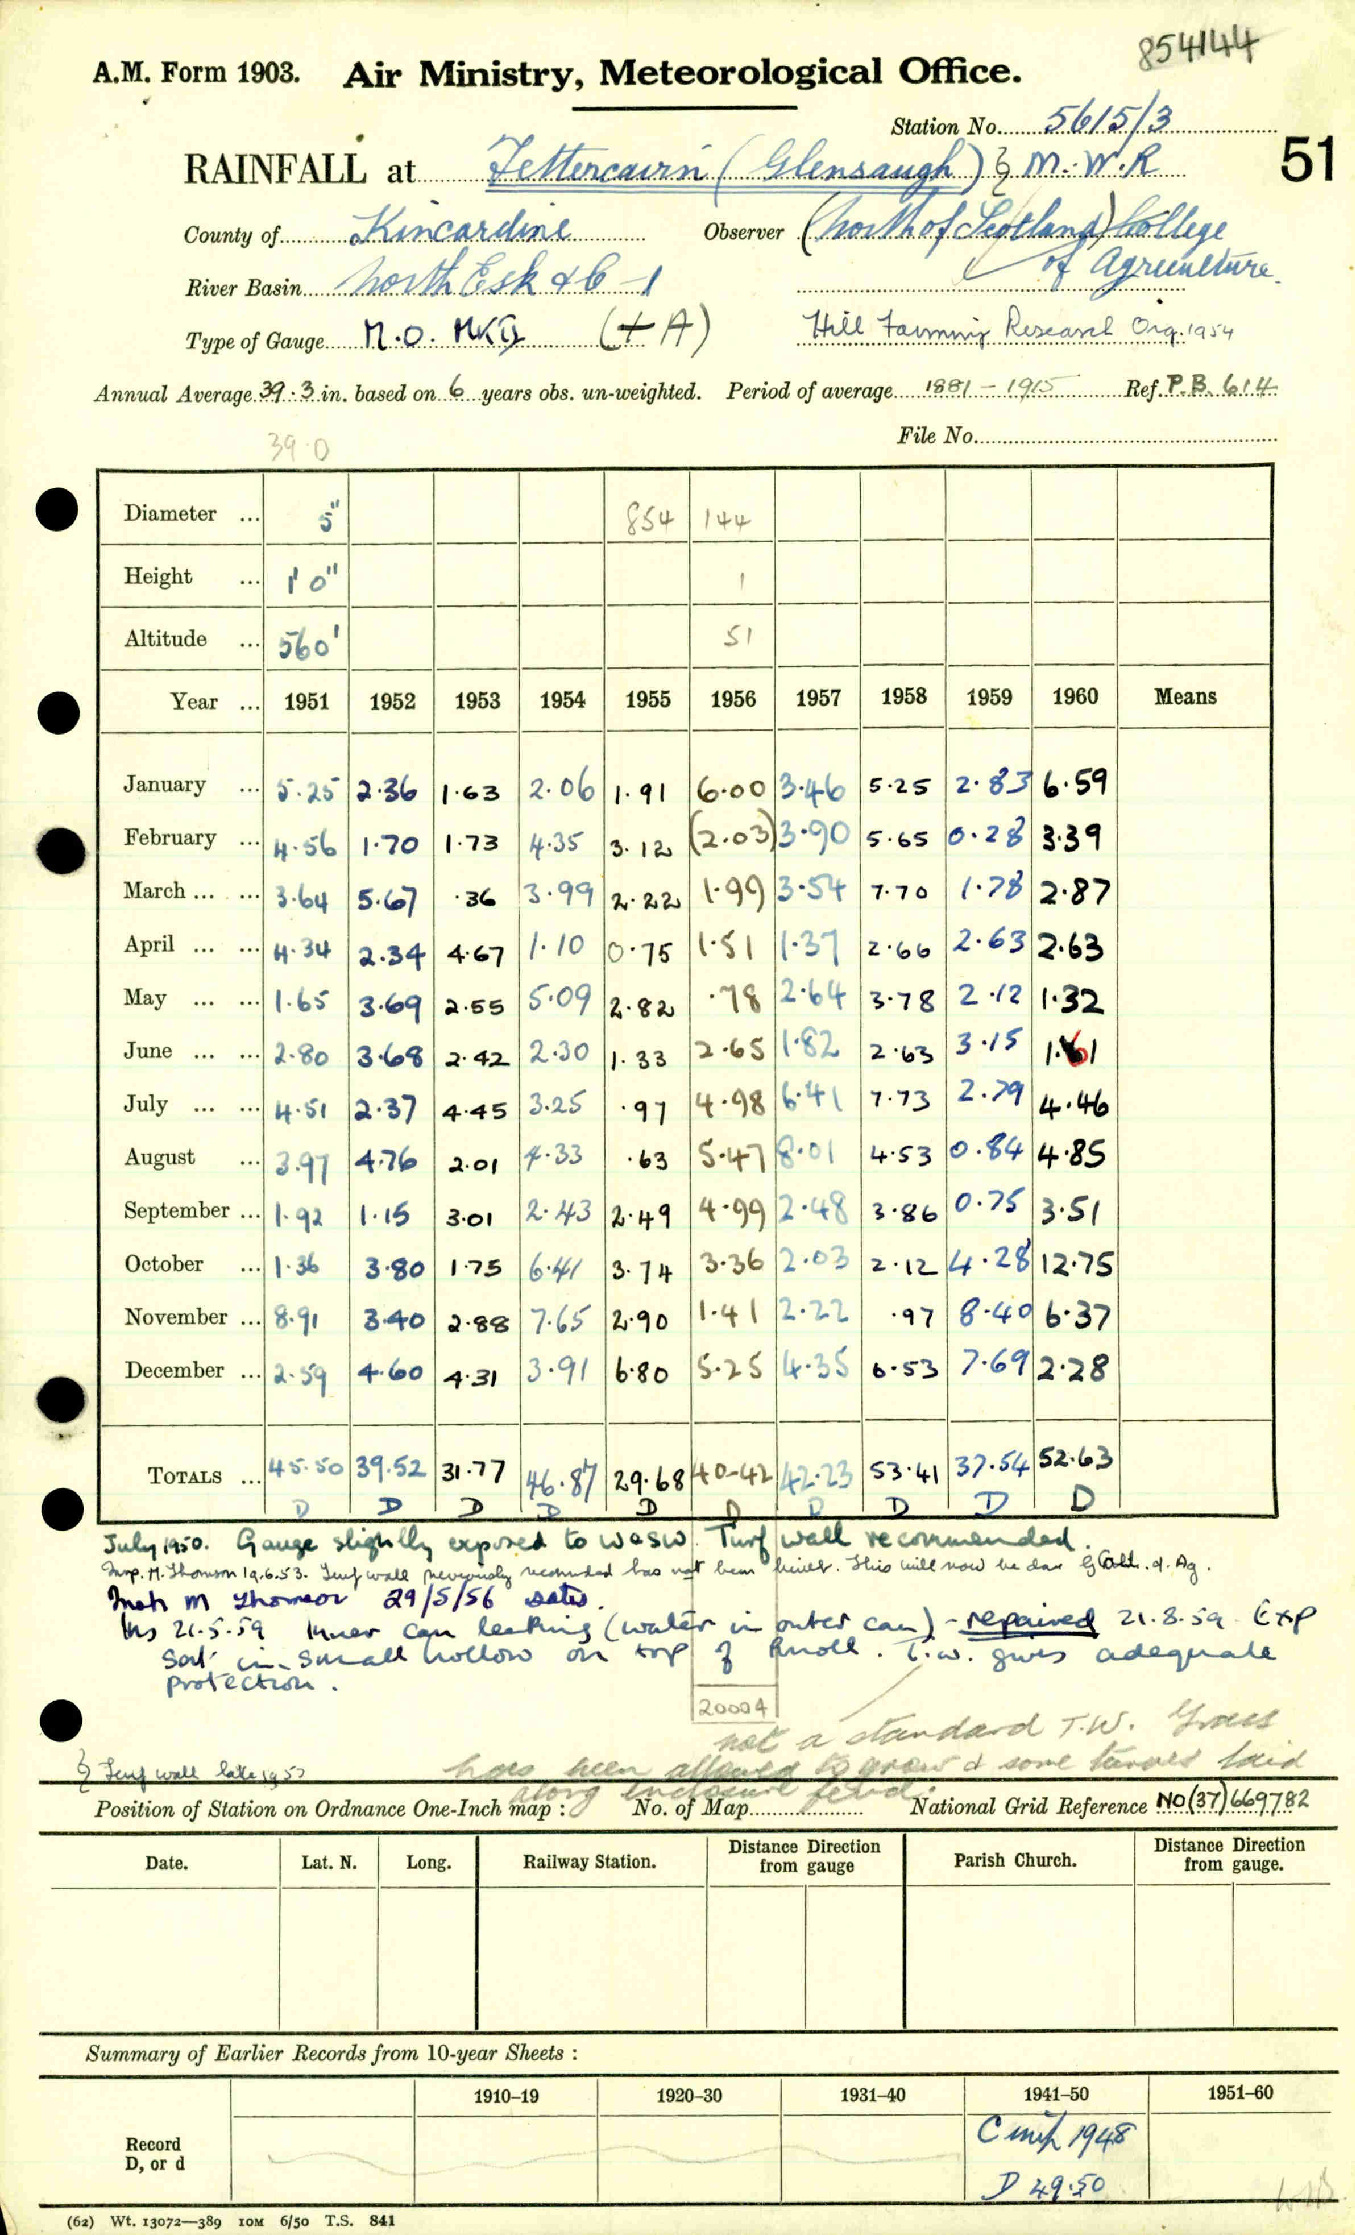 854144
A.M. Form 1903. Air Ministry, Meteorological Office.
Station No. 5615/3
RAINFALL at Fettercairn (Glensaugh) & M.W.R 51
County of Kincardine Observer (North of Scotland) College
River Basin North Esk &c - 1 of Agriculture.
Type of Gauge M.O. MKII (+A) Hill Farming Research Org. 1954
Annual Average 39.3 in. based on 6 years obs. un-weighted. Period of average 1881-1915 Ref. P.B. 614
39.0 File No.
Diameter ... 5" 854 144
Height ... 1' 0" 1
Altitude ... 560' 51
Year ... 1951 1952 1953 1954 1955 1956 1957 1958 1959 1960 Means
January ... 5.25 2.36 1.63 2.06 1.91 6.00 3.46 5.25 2.83 6.59
February ... 4.56 1.70 1.73 4.35 3.12 (2.03) 3.90 5.65 0.28 3.39
March ... ... 3.64 5.67 .36 3.99 2.22 1.99 3.54 7.70 1.78 2.87
April ... ... 4.34 2.34 4.67 1.10 0.75 1.51 1.37 2.66 2.63 2.63
May ... ... 1.65 3.69 2.55 5.09 2.82 .78 2.64 3.78 2.12 1.32
June ... ... 2.80 3.68 2.42 2.30 1.33 2.65 1.82 2.63 3.15 1.61
July ... ... 4.51 2.37 4.45 3.25 .97 4.98 6.41 7.73 2.79 4.46
August ... 3.97 4.76 2.01 4.33 .63 5.47 8.01 4.53 0.84 4.85
September ... 1.92 1.15 3.01 2.43 2.49 4.99 2.48 3.86 0.75 3.51
October ... 1.36 3.80 1.75 6.41 3.74 3.36 2.03 2.12 4.28 12.75
November ... 8.91 3.40 2.88 7.65 2.90 1.41 2.22 .97 8.40 6.37
December ... 2.59 4.60 4.31 3.91 6.80 5.25 4.35 6.53 7.69 2.28
TOTALS ... 45.50 39.52 31.77 46.87 29.68 40.42 42.23 53.41 37.54 52.63
D D D D D D D D D D
July 1950. Gauge slightly exposed to W & SW. Turf wall recommended.
Insp. M. Thomson 19.6.53. Turf wall previously recommended has not been built. This will now be done by Coll. of Ag.
M Thomson 29/5/56 Satis.
Ins 21.5.59 Inner can leaking (water in outer can) - repaired 21.8.59. Exp
Sat. in small hollow on top of knoll. T.W. gives adequate
protection.
20004
not a standard T.W. Grass
has been allowed to grow & some turves laid
along enclosure fence.
Turf wall late 1953
Position of Station on Ordnance One-Inch map : No. of Map National Grid Reference NO(37)669782
Date. Lat. N. Long. Railway Station. Distance from gauge Direction Parish Church. Distance from gauge. Direction
Summary of Earlier Records from 10-year Sheets :
1910–19 1920–30 1931–40 1941–50 1951–60
Record
D, or d
C 1948
D 49.50
(62) Wt. 13072—389 IOM 6/50 T.S. 841